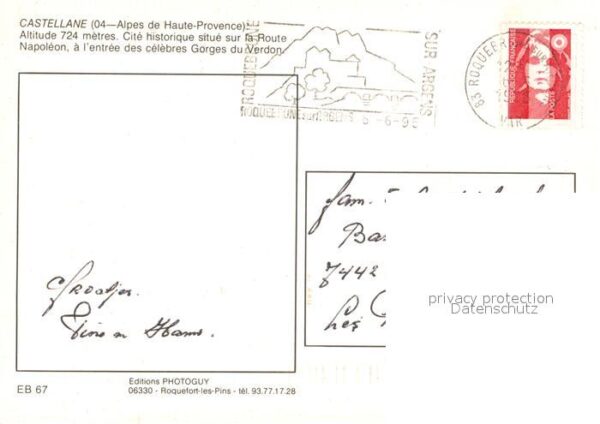 CASTELLANE (04—Alpes de Haute-Provence)
Altitude 724 mètres. Cité historique situé sur la Route
Napoléon, à l'entrée des célèbres Gorges du Verdon.
ROQUEBRUNE
SUR ARGENS
6-6-95
83 ROQUEBR
VAR
REPUBLIQUE FRANÇAISE
LA POSTE
Groetjes.
Tini en Hans.
fam.
Ba
7442
privacy protection
Datenschutz
EB 67
Editions PHOTOGUY
06330 - Roquefort-les-Pins - tél. 93.77.17.28